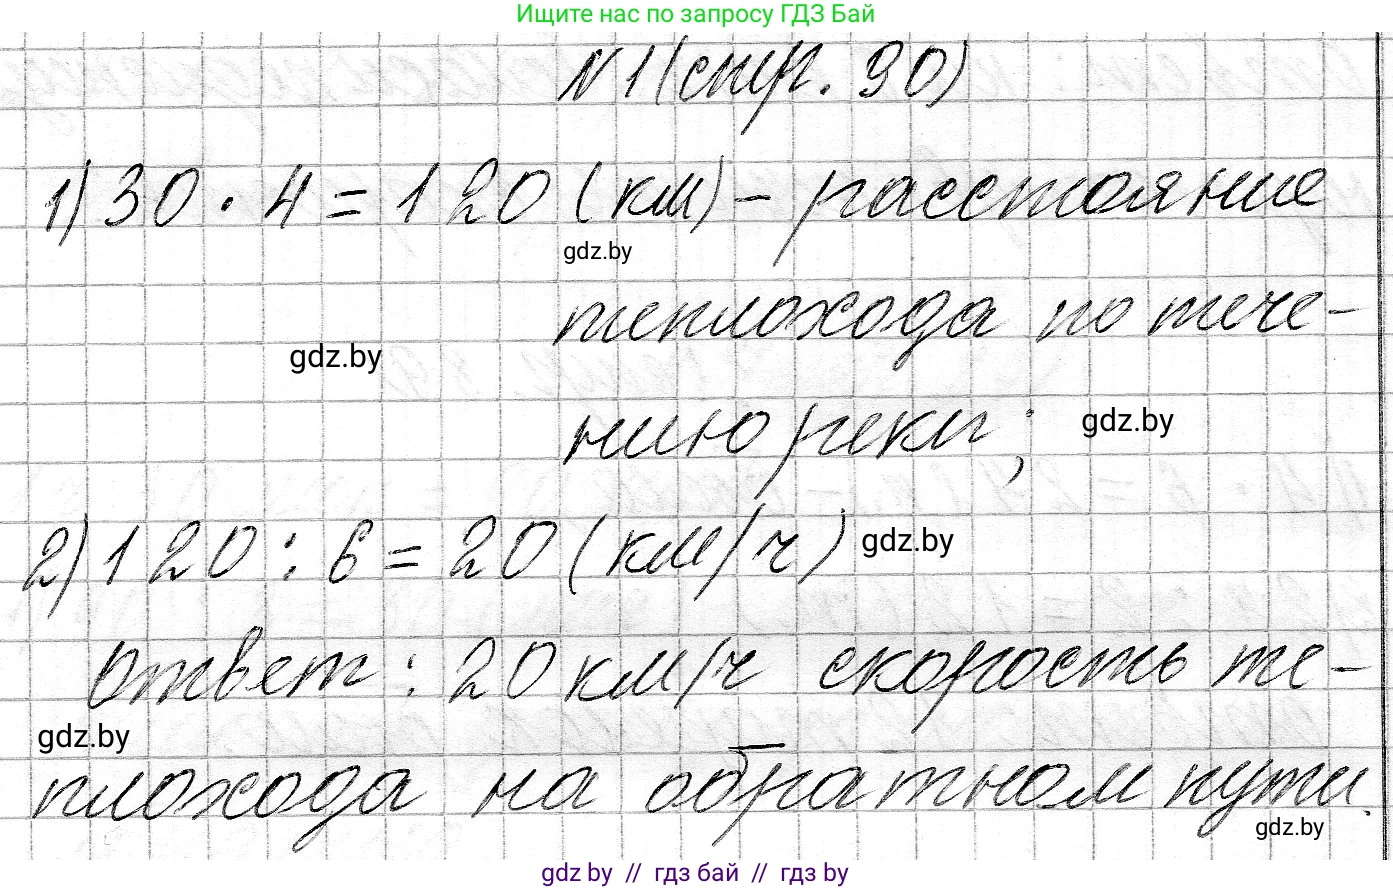 Ищите нас по запросу ГДЗ Бай
N 1 (стр. 90)
1) 30 · 4 = 120 (км) – расстояние
gdz.by
теплохода по тече-
gdz.by
нию реки;
gdz.by
2) 120 : 6 = 20 (км/ч)
gdz.by
Ответ: 20 км/ч скорость те-
gdz.by
плохода на обратном пути.
gdz.by
gdz by // гдз бай // гдз by